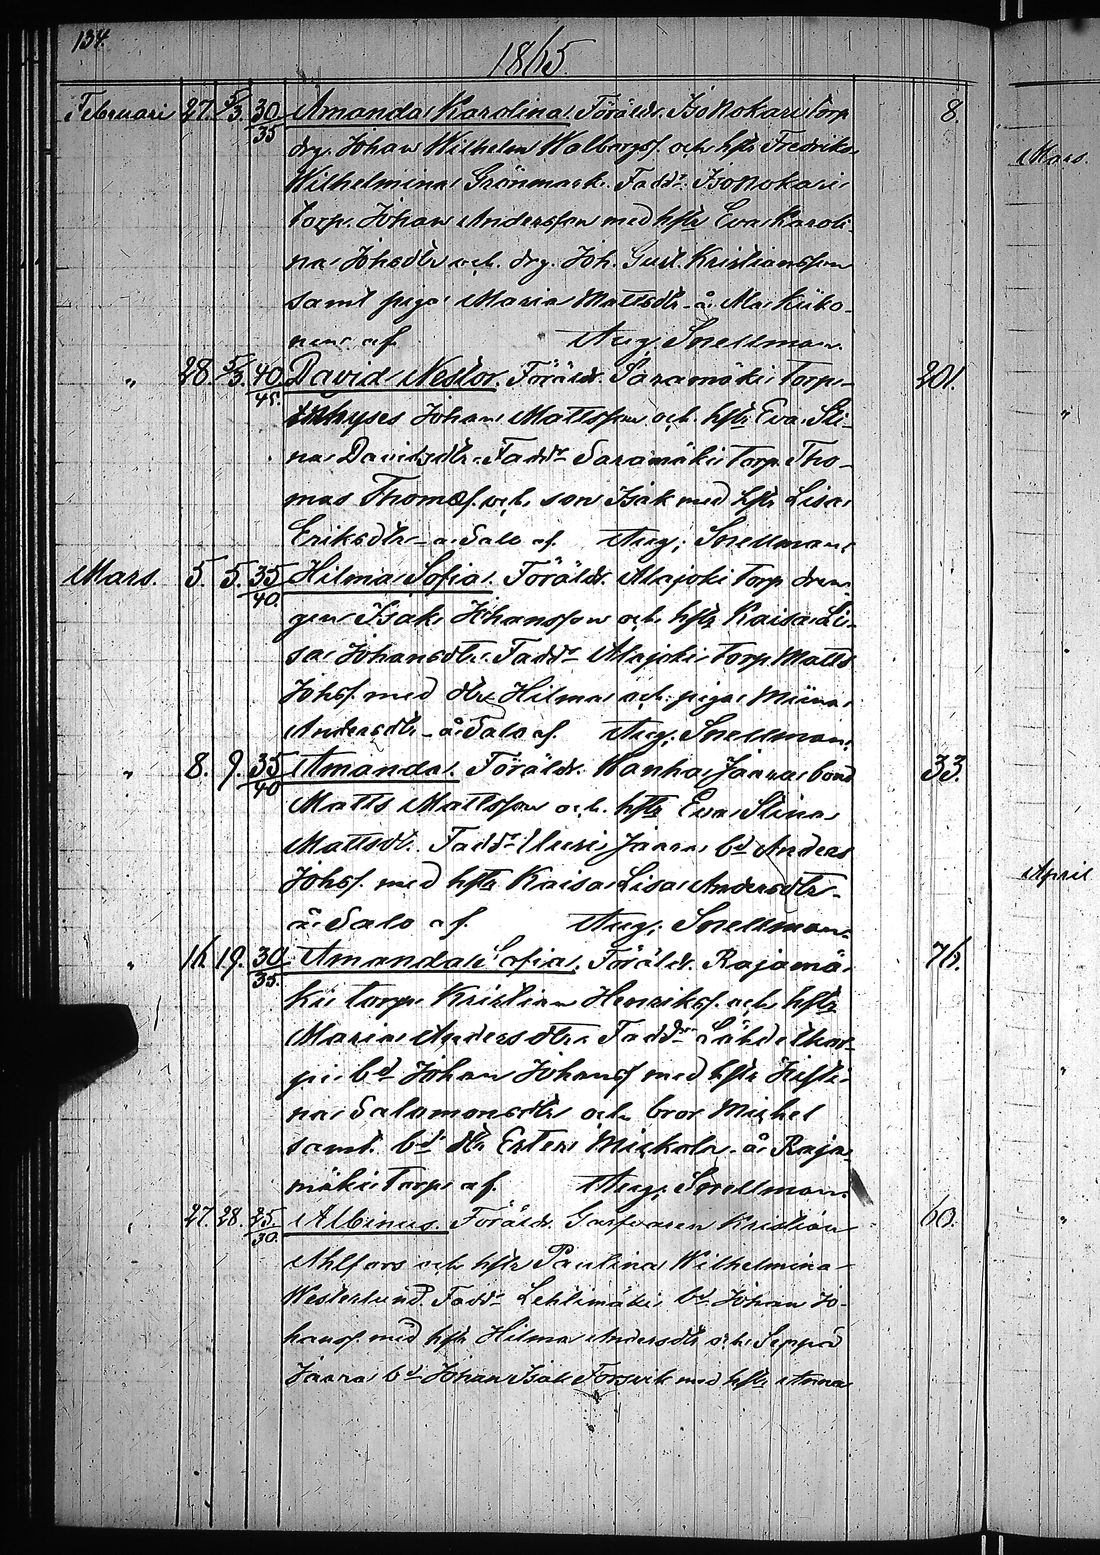 134.
1865.
Februari 27. 5/3. 30/35 Amanda Karolina. Föräldr. Isokokari torp 8.
drg. Johan Wilhelm Walborgsf. och hstr Fredrika
Wilhelmina Grönmark. Faddr. Isokokari
torp. Johan Andersson med hstr Eva Karoli-
na Johsdtr och drg. Joh. Gust. Kristiansson
samt piga Maria Mattsdtr å Ala Kiiko-
nen af Aug. Snellman.
" 28. 5/3. 40/45. David Nestor. Föräldr. Saramäki torp- 201.
inhyses Johan Mattsson och hstr Eva Sti-
na Davidsdtr. Faddr Saramäki torp. Tho-
mas Thomasf. och son Isak med hstr Lisa
Eriksdtr å Salo af Aug. Snellman.
Mars. 5. 5. 35/40. Hilma Sofia. Föräldr. Alajoki torp dren-
gen Isak Johansson och hstr Kaisa Li-
sa Johansdtr. Faddr Alajoki torp Matts
Johsf. med dtr Hilma och piga Miina
Andersdtr å Salo af. Aug. Snellman.
" 8. 9. 35/40 Amanda. Föräldr. Wanha Jaara bond
Matts Mattsson och hstr Eva Stina 33.
Mattsdt. Faddr Uusi Jaara bd Anders
Johsf. med hstr Kaisa Lisa Andersdtr
å Salo af. Aug. Snellman.
" 16. 19. 30/35. Amanda Sofia. Föräldr. Rajamä- 76.
ki torp. Kristian Henriksf. och hstr
Maria Andersdtr. Faddr Lähde
bd Johan Johansf med hstr
na Salamonsdtr och bror Michel
samt bd dtr Ester å Raja-
mäki torp af. Aug. Snellman.
" 27. 28. 25/30. Albinus. Föräldr. Garfvaren Kristian 60.
Ahlfors och hstr Paulina Wilhelmina
Westerlund. Faddr Lehtimäki bd Johan Jo-
hansf. med hstr Hilma Andersdtr och Seppä
Jaara bd Johan Isak Forsvik med hstr Anna
Mars.
"
April
"
"